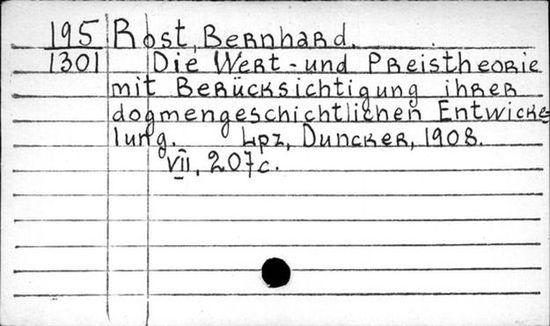 195 Rost, Bernhard.
1301 Die Wert- und Preistheorie
mit Berücksichtigung ihrer
dogmengeschichtlichen Entwicke
lung. Lpz, Duncker, 1908.
VII, 207c.